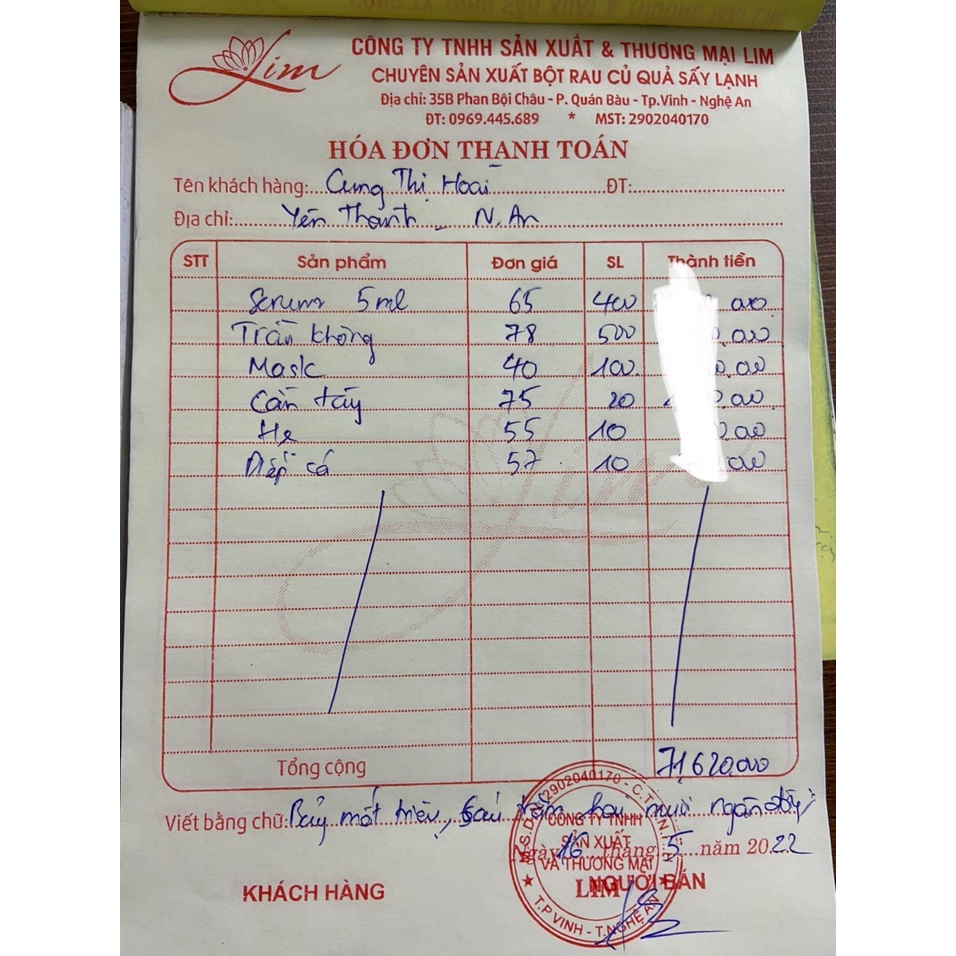 Lim
CÔNG TY TNHH SẢN XUẤT & THƯƠNG MẠI LIM
CHUYÊN SẢN XUẤT BỘT RAU CỦ QUẢ SẤY LẠNH
Địa chỉ: 35B Phan Bội Châu - P. Quán Bàu - Tp.Vinh - Nghệ An
ĐT: 0969.445.689 * MST: 2902040170
HÓA ĐƠN THANH TOÁN
Tên khách hàng: Cung Thị Hoài ĐT:
Địa chỉ: Yên Thành - N. An
STT Sản phẩm Đơn giá SL Thành tiền
Serum 5ml 65 400
Trầu không 78 500
Mask 40 100
Cần tây 75 20
Hẹ 55 10
Diếp cá 57 10
Tổng cộng 71,620,000
Viết bằng chữ: Bảy mốt triệu, sáu trăm hai mươi ngàn
Ngày 16 tháng 5 năm 2022
KHÁCH HÀNG NGƯỜI BÁN
2902040170 - C.T.T.N.H.H
CÔNG TY TNHH
SẢN XUẤT
VÀ THƯƠNG MẠI
LIM
T.P VINH - T.NGHỆ AN